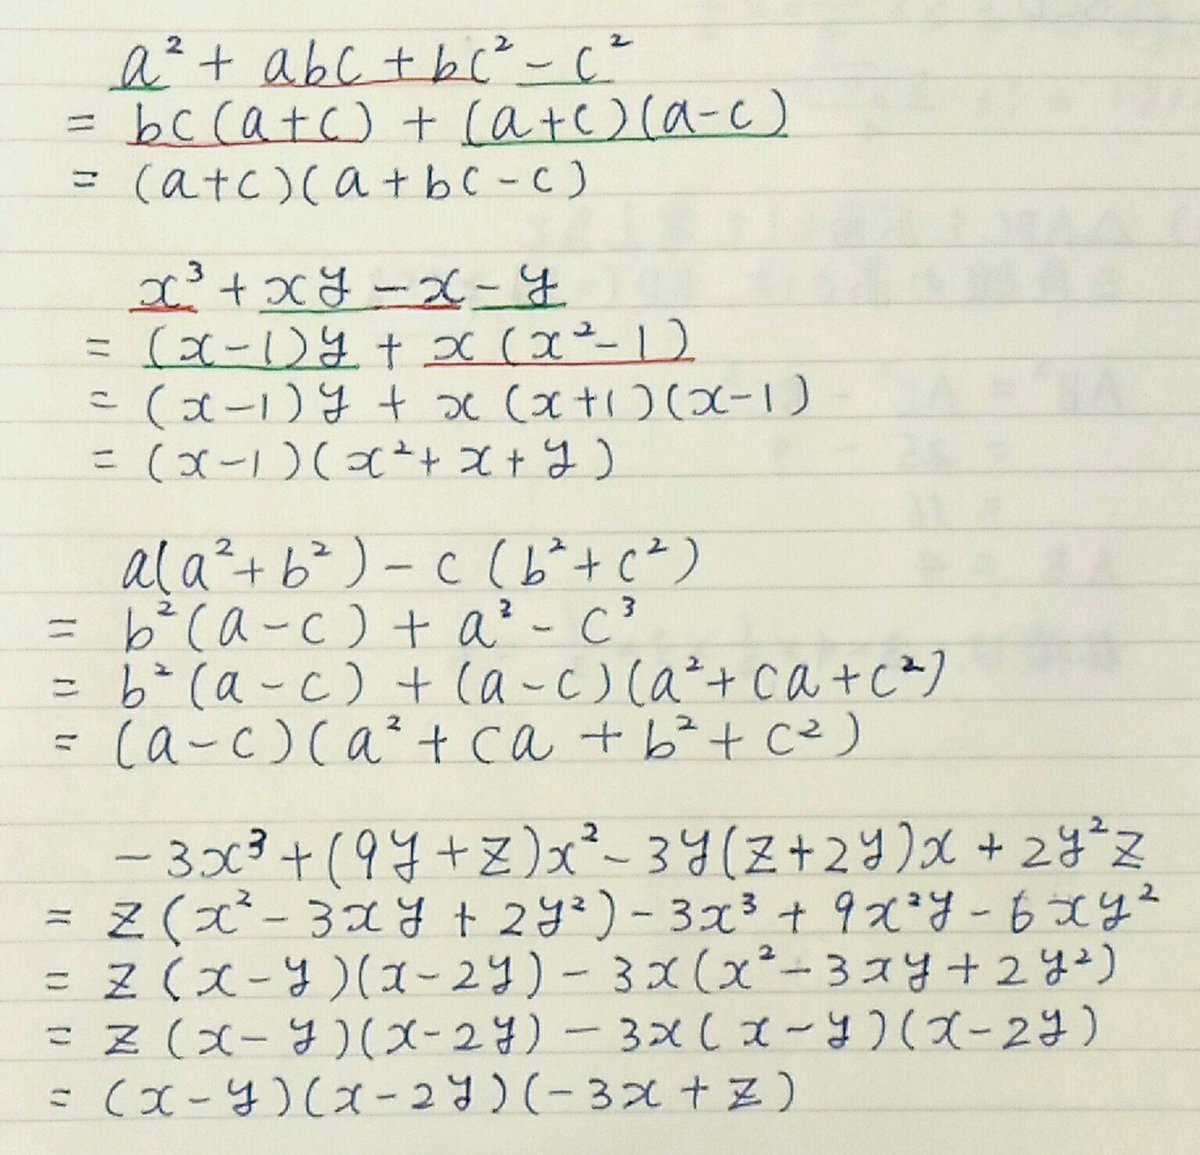 a² + abc + bc² - c²
= bc(a+c) + (a+c)(a-c)
= (a+c)(a+bc-c)
x³ + xy - x - y
= (x-1)y + x(x²-1)
= (x-1)y + x(x+1)(x-1)
= (x-1)(x²+x+y)
a(a²+b²) - c(b²+c²)
= b²(a-c) + a³ - c³
= b²(a-c) + (a-c)(a²+ca+c²)
= (a-c)(a²+ca+b²+c²)
-3x³+(9y+z)x²-3y(z+2y)x+2y²z
= z(x²-3xy+2y²)-3x³+9x²y-6xy²
= z(x-y)(x-2y)-3x(x²-3xy+2y²)
= z(x-y)(x-2y)-3x(x-y)(x-2y)
= (x-y)(x-2y)(-3x+z)